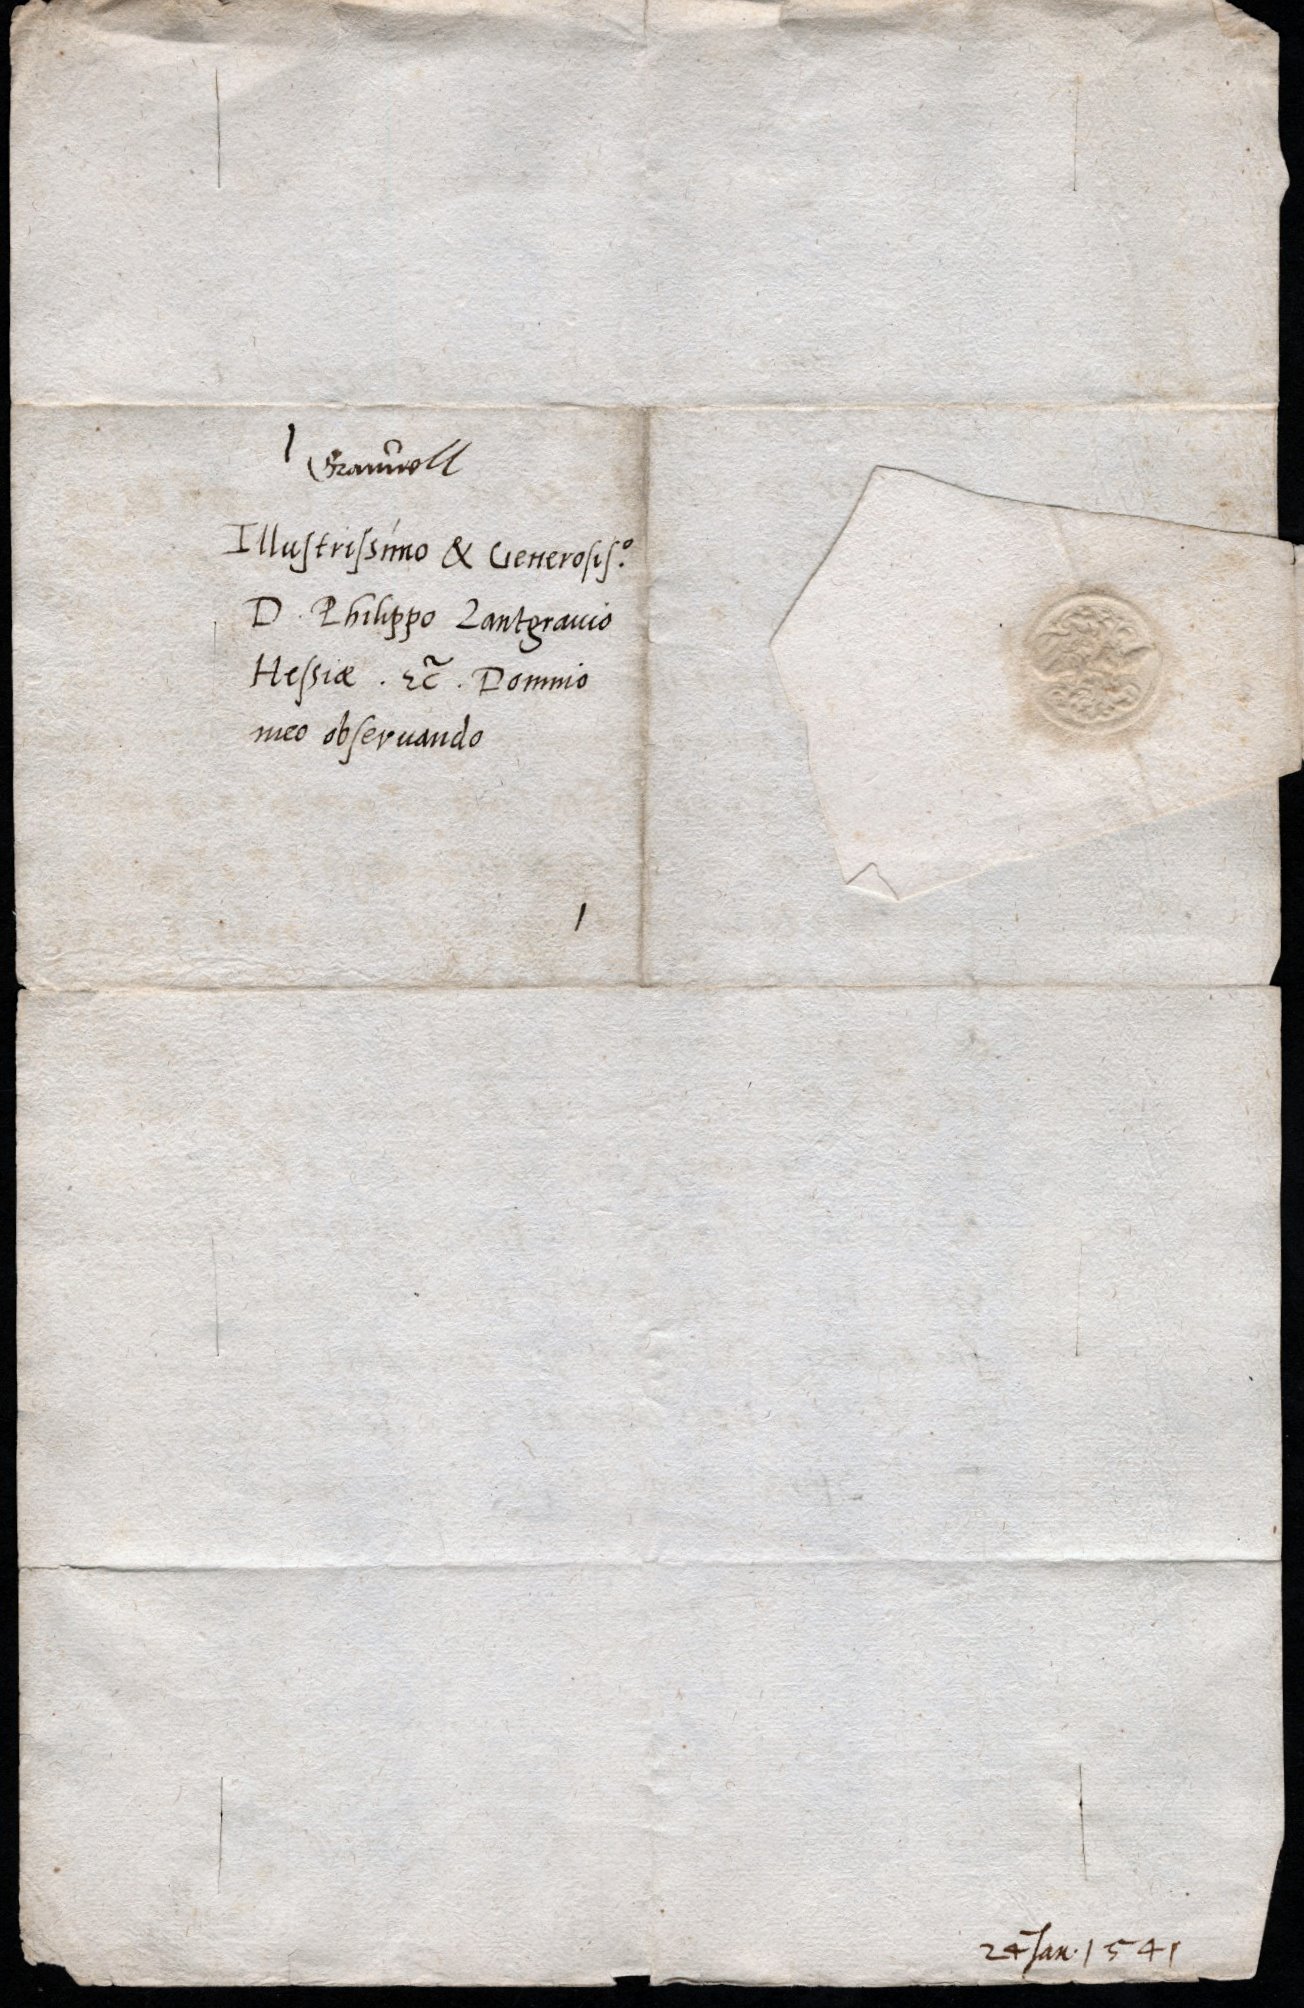 Granuell
Illustrissimo & Generosis.º
D. Philippo Lantgrauio
Hessiæ . &c̃ . Domino
meo obseruando
24 Jan. 1541